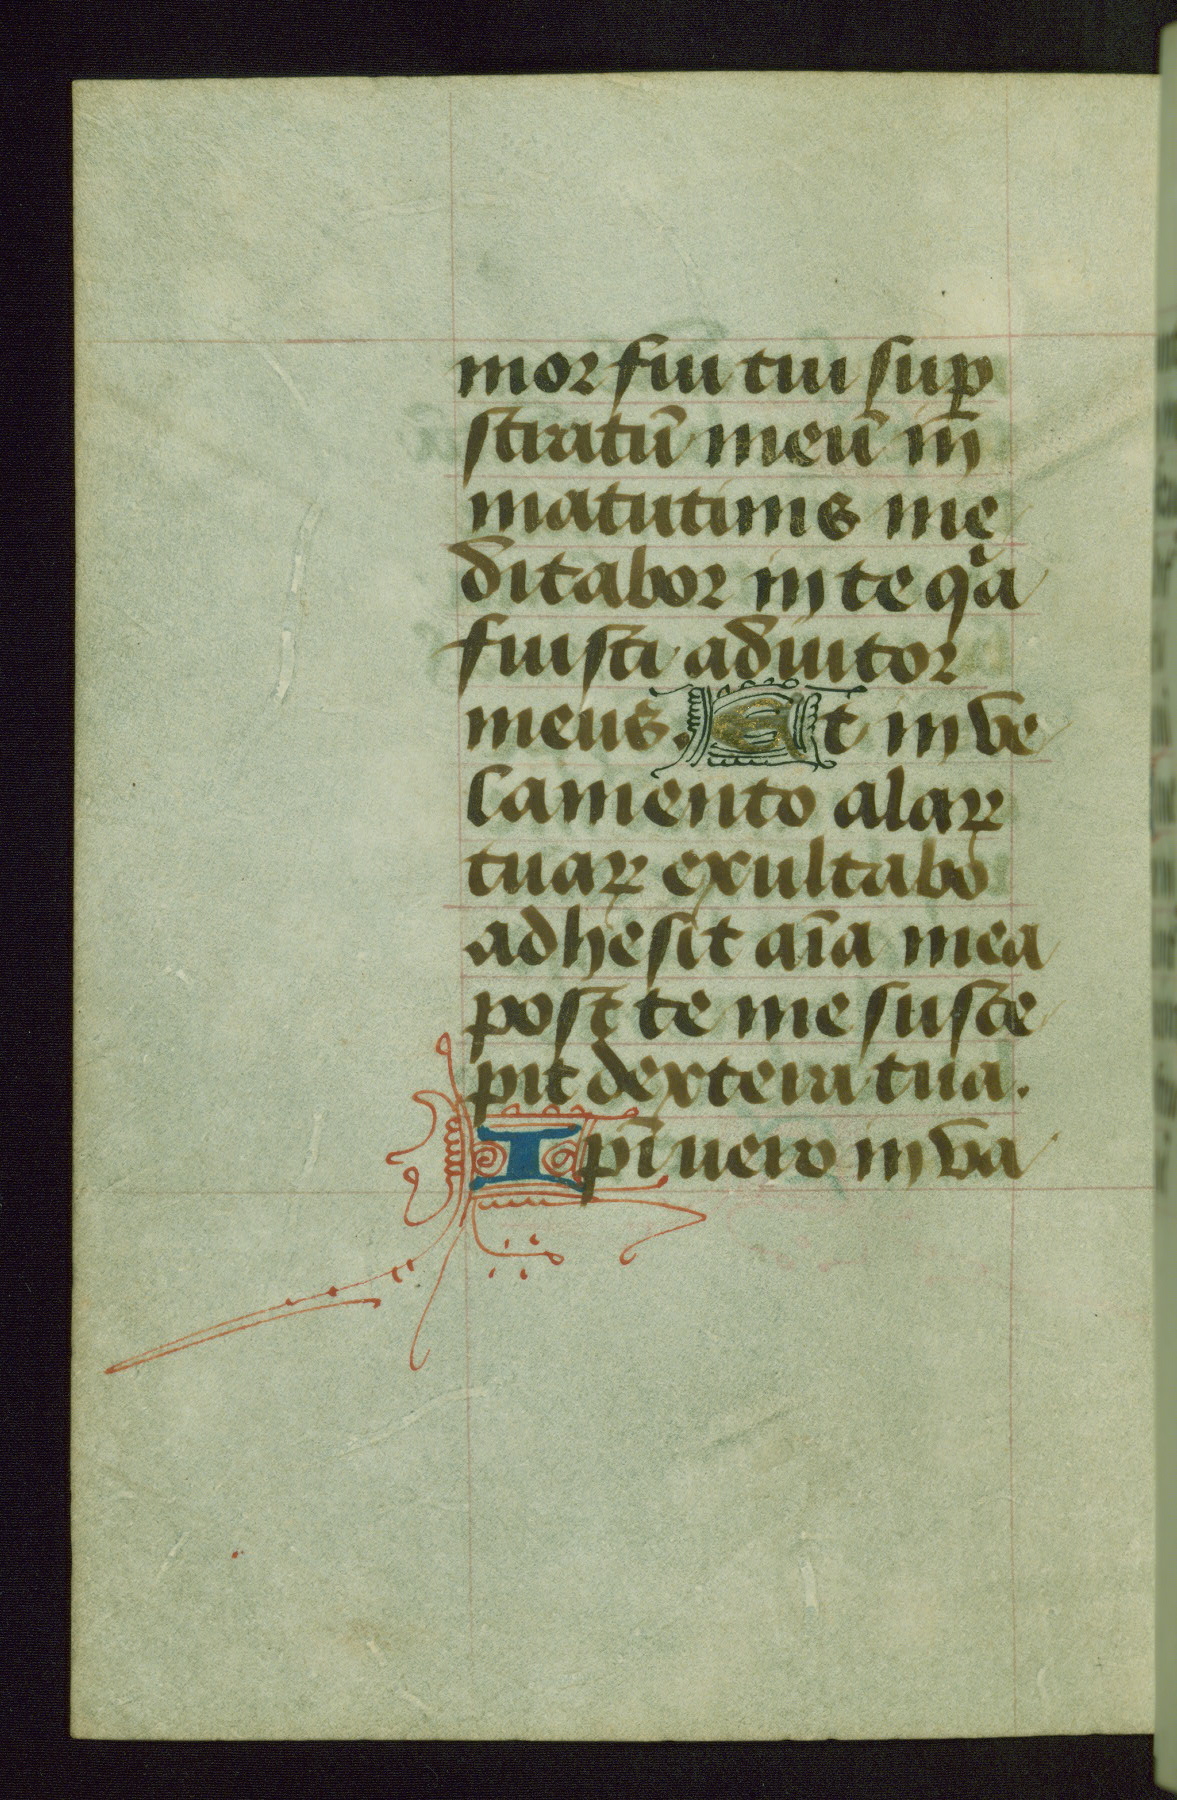 mor fui tui suꝑ
stratū meū in
matutinis me
ditabor in te qͣa
fuisti adiutor
meus. Et in ve
lamento alaꝝ
tuaꝝ exultabo
adhesit aīa mea
post te me susce
pit dextera tua.
Ipī uero in va